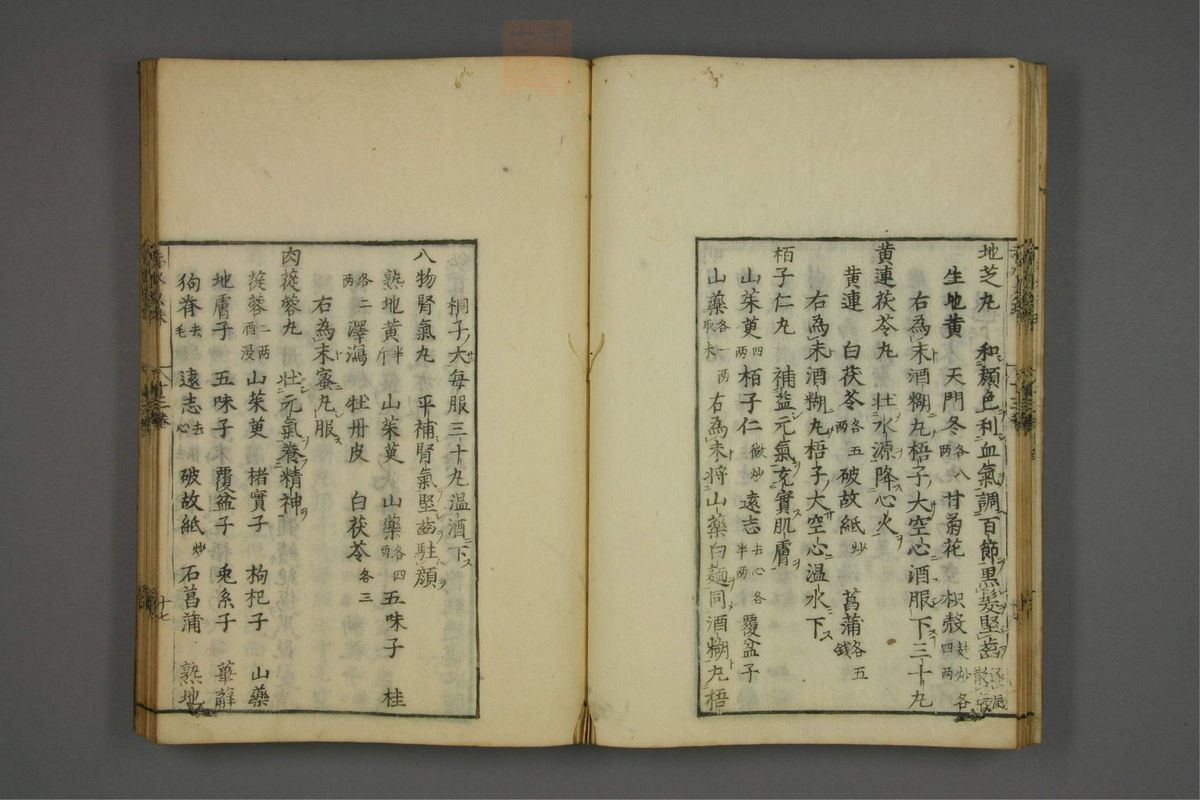 地芝丸 和顔色利血氣調百節黒髮堅齒 逐風散氣
生地黄 天門冬各八両 甘菊花 枳殼麸炒各四両
右為末酒糊丸梧子大空心酒服下三十丸
黄連茯苓丸 壮水源降心火
黄連 白茯苓各五両 破故紙炒 菖蒲各五錢
右為末酒糊丸梧子大空心温水下
栢子仁丸 補益元氣充實肌膚
山茱萸四両 栢子仁微炒 遠志去心各半両 覆盆子
山藥各一両取末 右為末将山藥白麺同酒糊丸梧
桐子大每服三十丸温酒下
八物腎氣丸 平補腎氣堅齒駐顔
熟地黄半斤 山茱萸 山藥各四両 五味子 桂
各二両 澤瀉 牡丹皮 白茯苓各三
右為末蜜丸服
肉蓯蓉丸 壮元氣養精神
蓯蓉二両酒浸 山茱萸 楮實子 枸杞子 山藥
地膚子 五味子 覆盆子 兎糸子 萆薢
狗脊去毛 遠志去心 破故紙炒 石菖蒲 熟地
十七